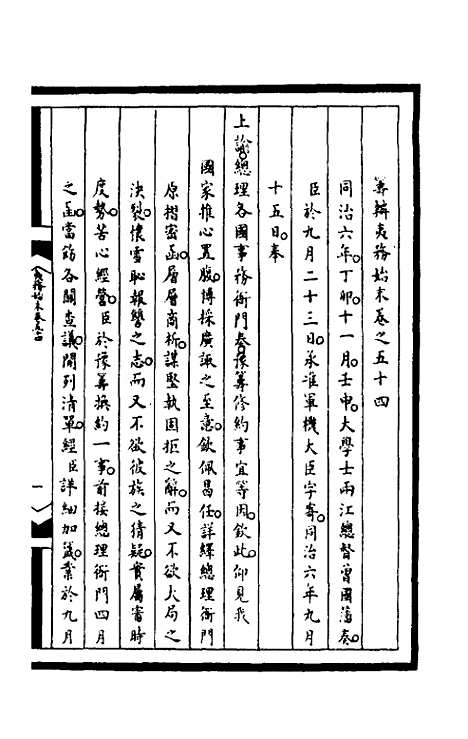 籌辦夷務始末卷之五十四
同治六年。丁卯。十一月。壬申。大學士兩江總督曾國藩奏。
臣於九月二十三日。承准軍機大臣字寄。同治六年九月
十五日。奉
上諭。總理各國事務衙門奏。豫籌修約事宜等因。欽此。仰見我
國家推心置腹。博採廣諏之至意。欽佩曷任。詳繹總理衙門
原摺密函。層層商析。謀堅執固拒之辭。而又不欲大局之
決裂。懷雪恥報讐之志。而又不欲彼族之猜疑。實屬審時
度勢。苦心經營。臣於豫籌換約一事。前接總理衙門四月
之函。當飭各關查議。開列清單。經臣詳細加籤。業於九月
夷務始末卷五十四
一